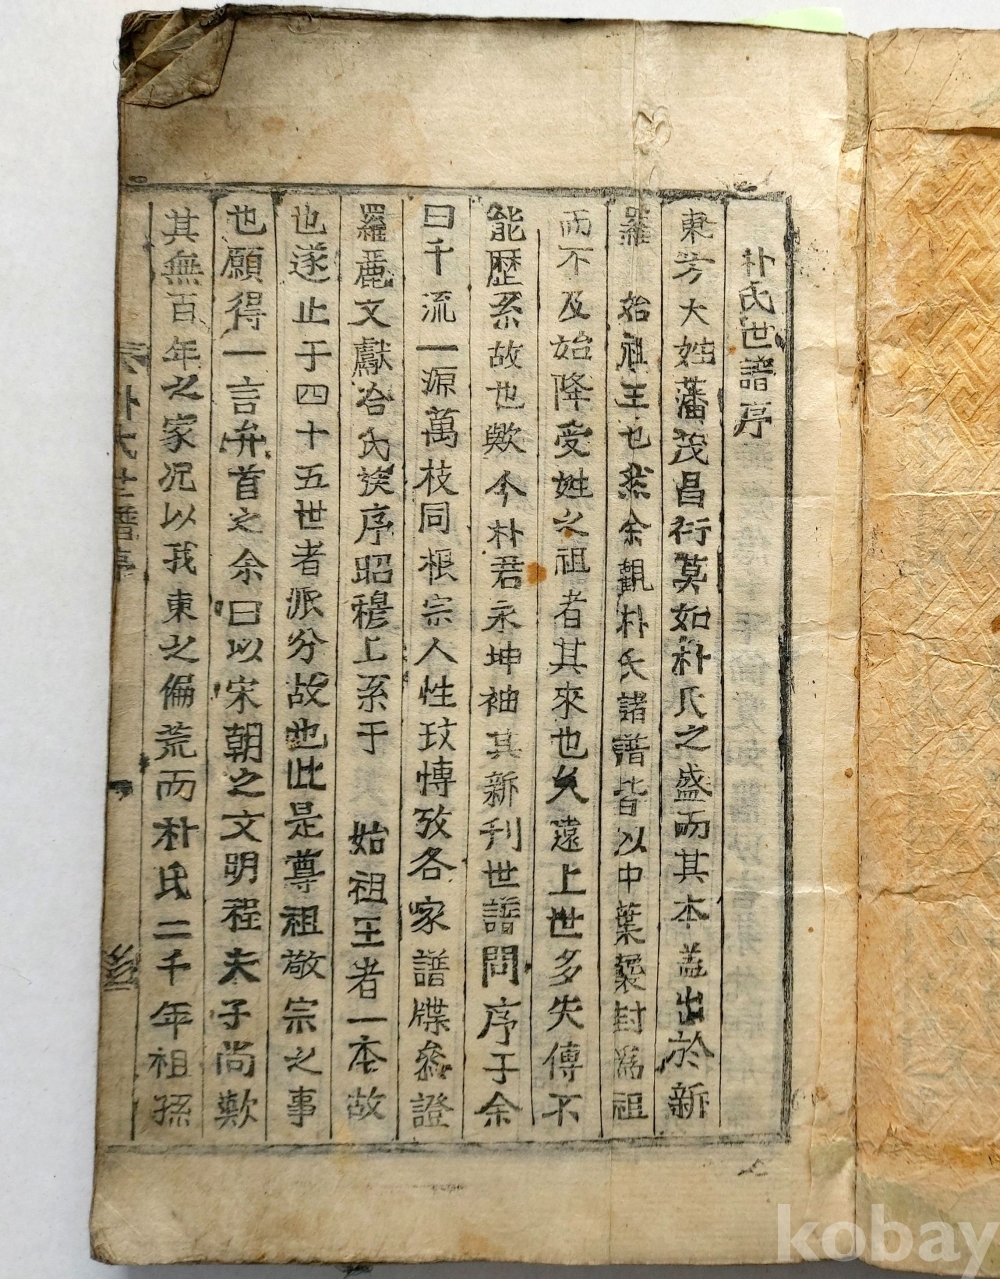 朴氏世譜序
東方大姓藩茂昌衍莫如朴氏之盛而其本盖出於新
羅 始祖王也然余觀朴氏諸譜皆以中葉襲封爲祖
而不及始降受姓之祖者其來也久遠上世多失傳不
能歷系故也歟今朴君永坤袖其新刊世譜問序于余
曰千流一源萬枝同根宗人性玟愽攷各家譜牒叅證
羅麗文獻合氏族序昭穆上系于 始祖王者一本故
也遂止于四十五世者派分故也此是尊祖敬宗之事
也願得一言弁首之余曰以宋朝之文明程夫子尚歎
其無百年之家况以我東之偏荒而朴氏二千年祖孫
朴氏世譜序
kobay